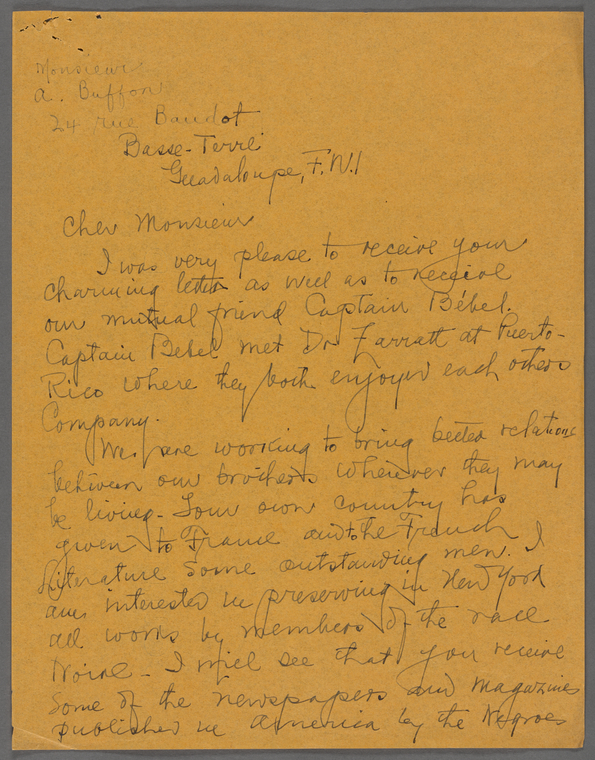 Monsieur
A. Buffon
24 rue Baudot
Basse-Terre
Guadaloupe, F.W.I
Cher Monsieur
I was very please to receive your
charming letter as well as to receive
our mutual friend Captain Bébel.
Captain Bebel met Dr Zarratt at Puerto-
Rico where they both enjoyed each others
Company.
We are working to bring better relations
between our brothers wherever they may
be living - Your own country has
given to France and to the French
Literature some outstanding men. I
am interested in preserving in New York
all works by members of the race
Noire - I will see that you receive
some of the newspapers and magazines
published in America by the Negroes